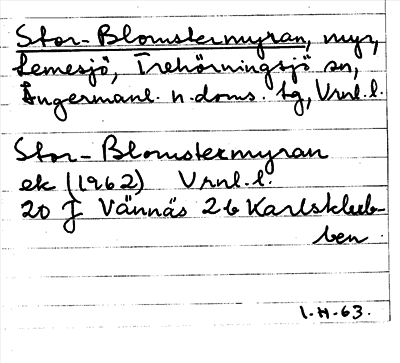 Stor-Blomstermyran, myr,
Lemesjö, Trehörningsjö sn,
Ångermanl. n. doms. tg, Vrnl. l.
Stor-Blomstermyran
ek (1962) Vrnl. l.
20 J Vännäs 2b Karlsklub-
ben
1-H-63.